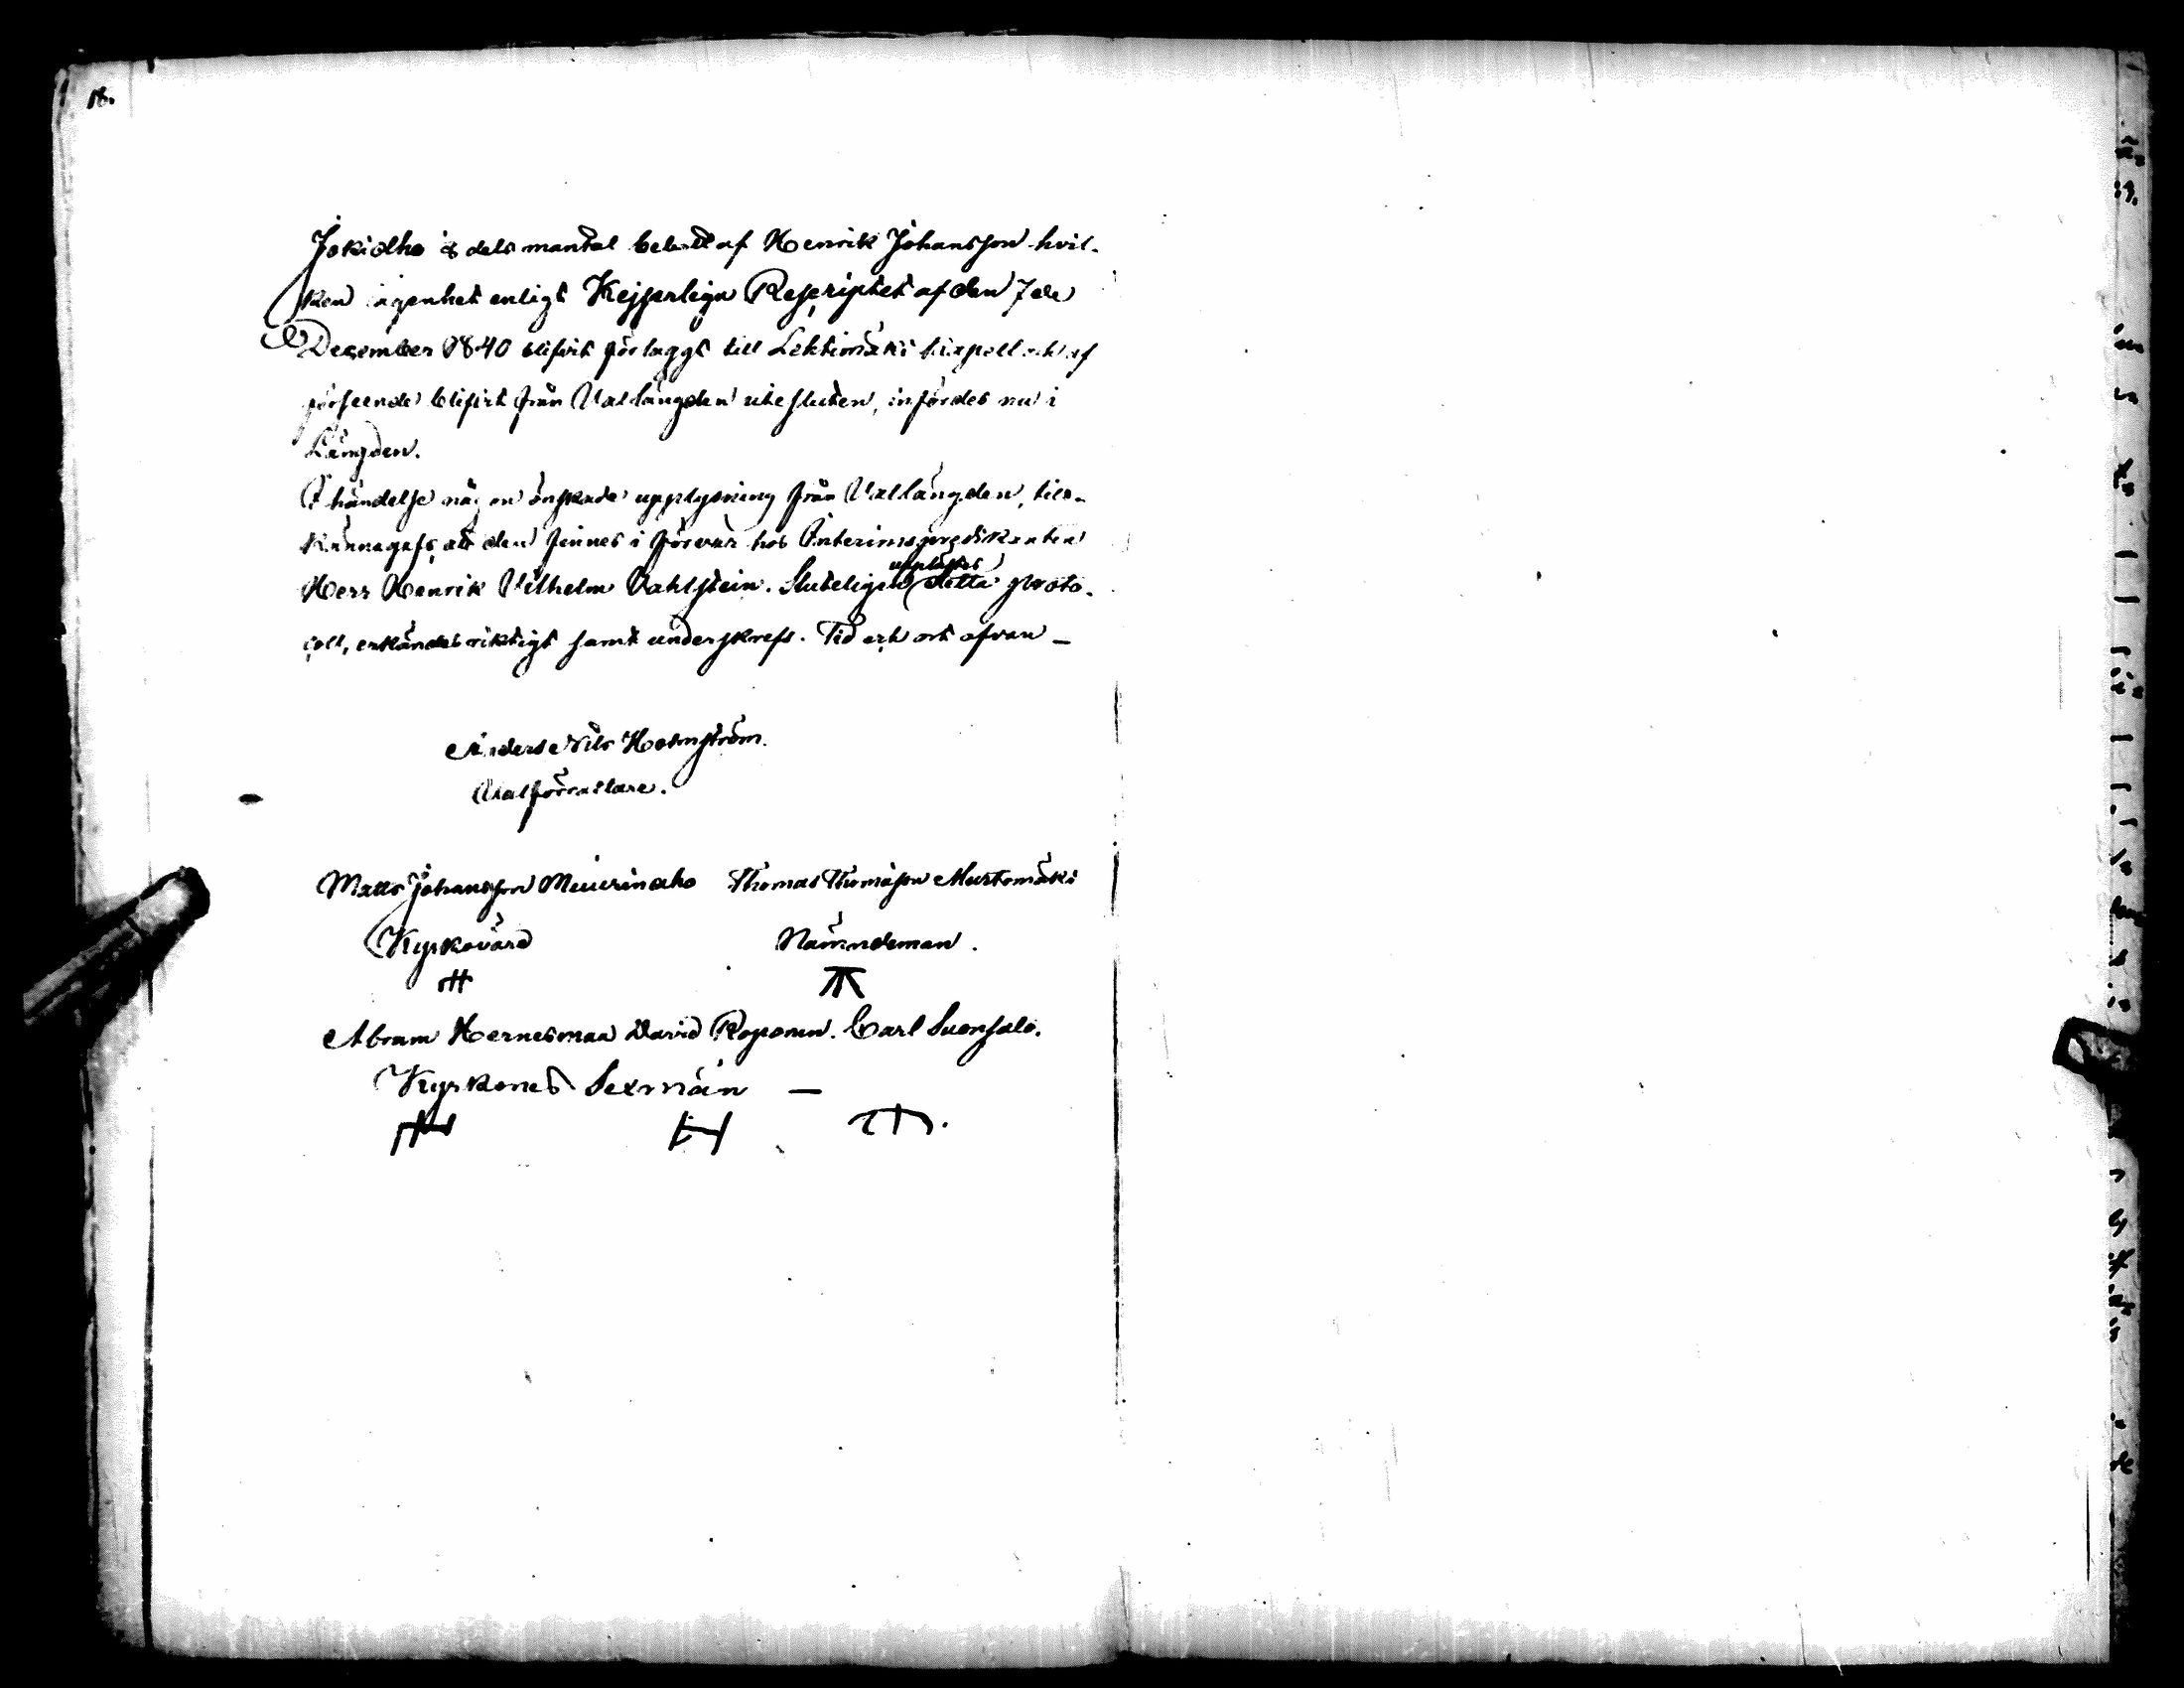 18.
Jokiaho ⅛ dels mantal bebott af Henrik Johansson hvil-
ken lägenhet enligt Kejserliga Rescriptet af den 7de
December 1840 blifvit förlaggt till Lektimäki kapell och af
förseende blifvit från Vallängden utesluten, infördes nu i
Längden.
I händelse någon önskade upplysning från Vallängden, till-
kännagafs att den finnes i förvar hos Interimspredikanten
Herr Henrik Vilhelm Vahlstein. Sluteligen upplästes detta proto-
coll, erkändes riktigt samt underskrefs. Tid och ort ofvan —
Anders Nils Holmström.
Valförrättare.
Matts Johansson Meuerinaho Thomas Thomasson Murtomäki
Kyrkovärd Nämndeman.
Abram Hernesmaa David Roponen. Carl Suonsalo.
Kyrkones Sexmän —